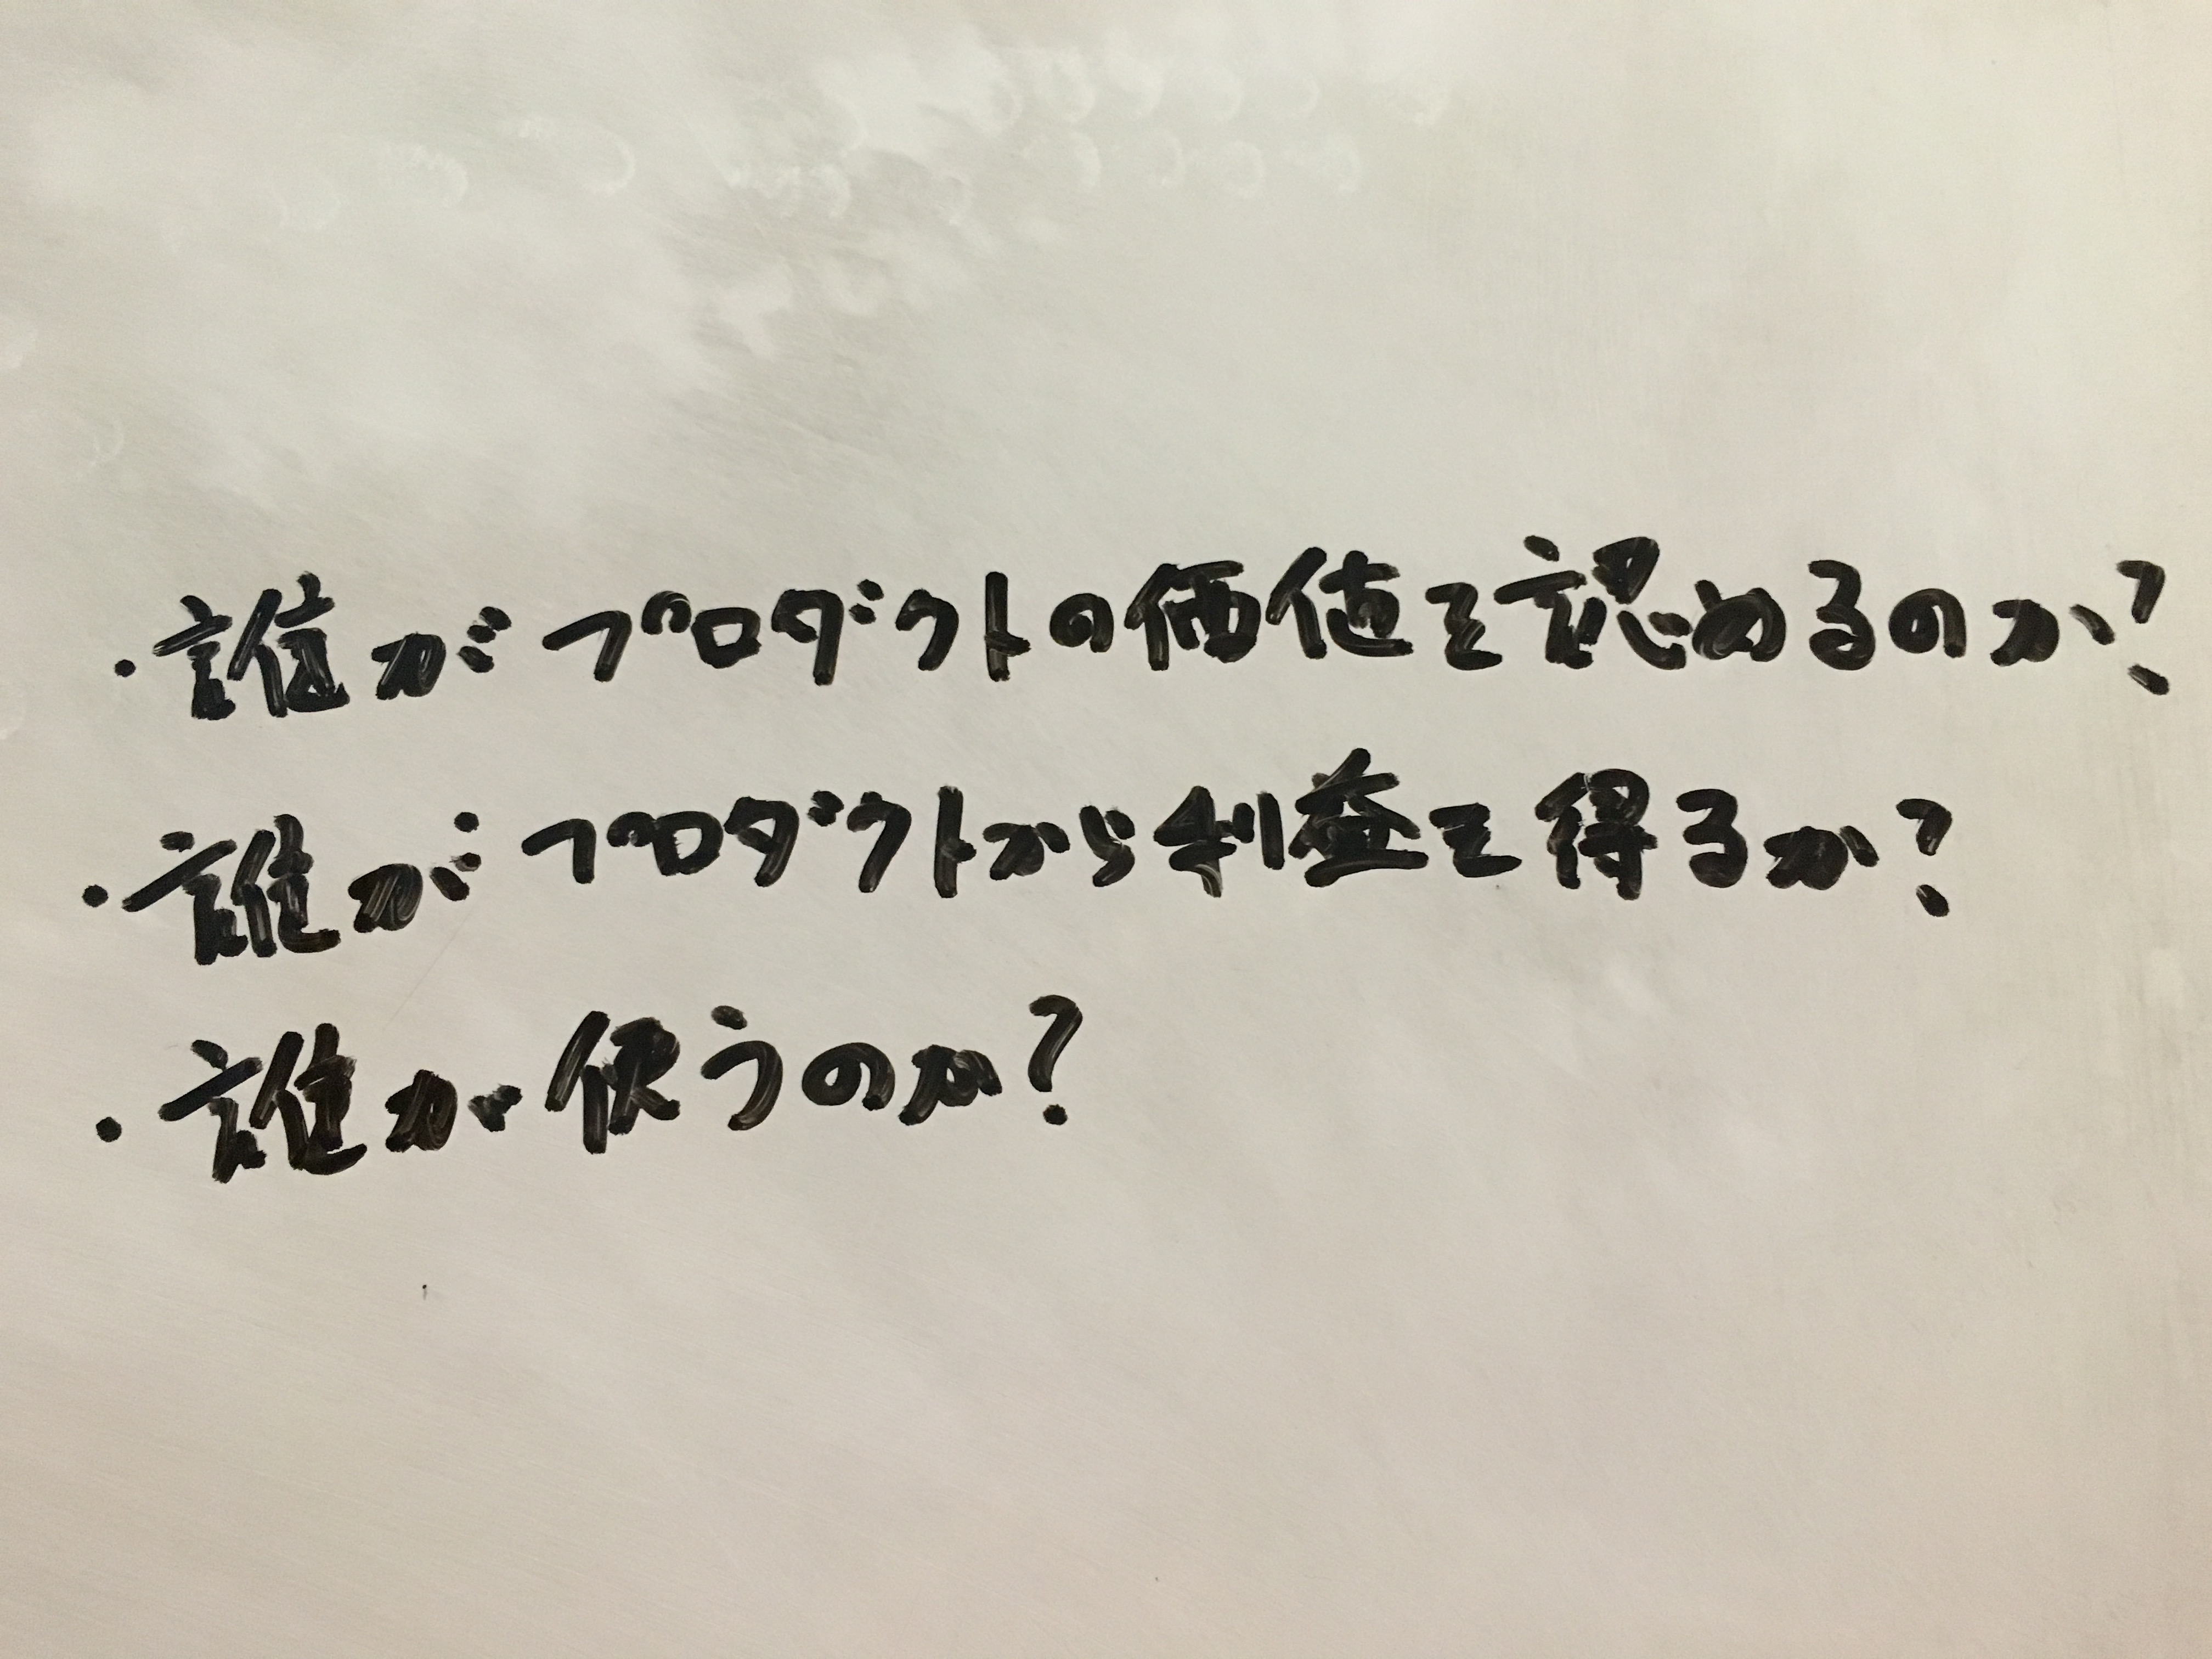 ・誰がプロダクトの価値を認めるのか?
・誰がプロダクトから利益を得るか?
・誰が使うのか?